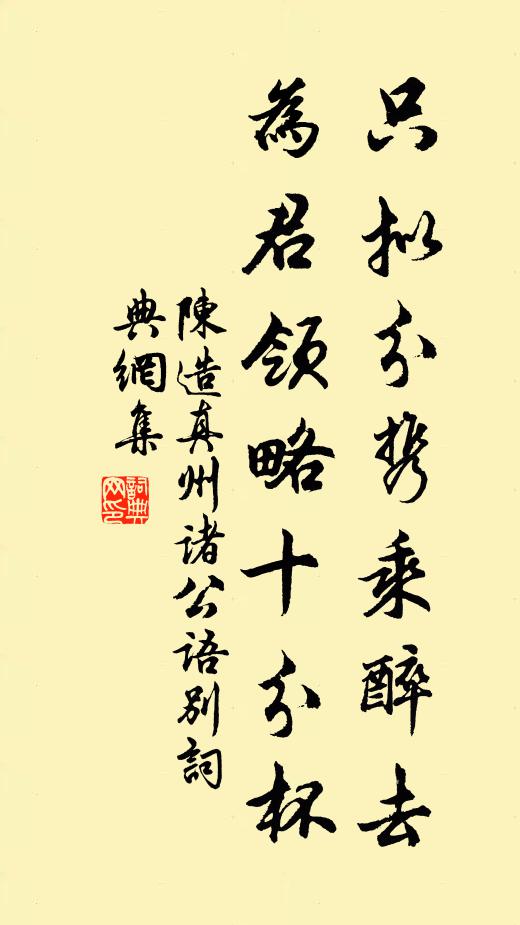 只拟分携乘醉去
為君领略十分杯
陳造真州诸公语别詞
典網集
詞典網印